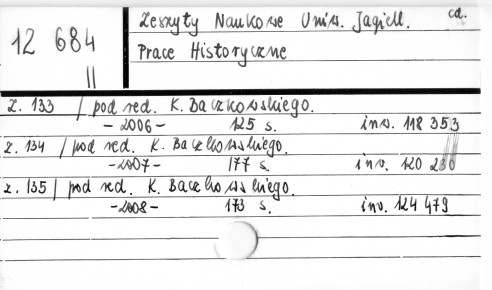 Zeszyty Naukowe Uniw. Jagiell. cd.
12 684
II
Prace Historyczne
z. 133 / pod red. K. Baczkowskiego.
-2006- 125 s. inw. 118 353
z. 134 / pod red. K. Baczkowskiego.
-2007- 177 s. inw. 120 230
z. 135 / pod red. K. Baczkowskiego.
-2008- 173 s. inw. 124 479